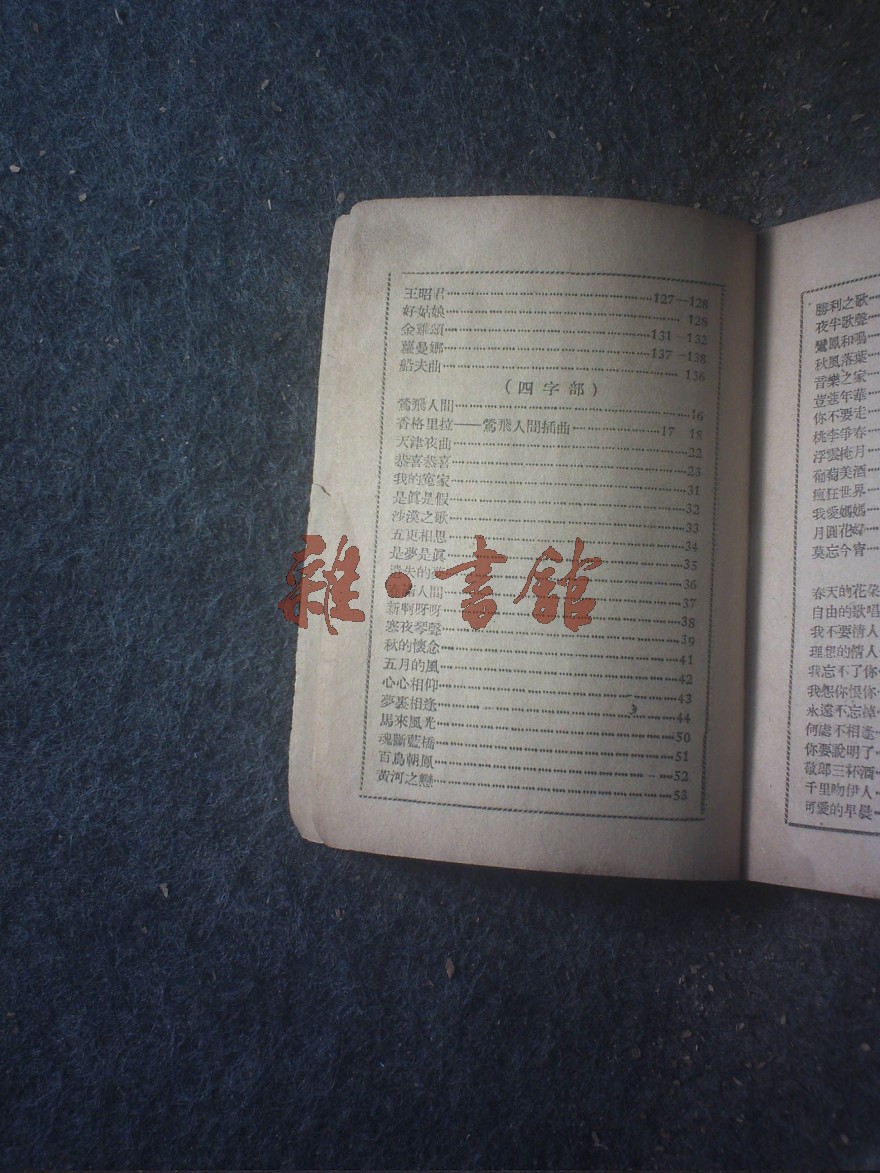 王昭君……127—128
好姑娘……128
金蕊頌……131—132
蘿曼娜……137—138
船夫曲……136
(四字部)
鶯飛人間……16
香格里拉——鶯飛人間插曲……17 18
天津夜曲……22
恭喜恭喜……23
我的寃家……31
是眞是假……32
沙漠之歌……33
五更相思……34
是夢是眞……35
失的……36
滿人間……37
新啊呀呀……38
寒夜琴聲……39
秋的懷念……41
五月的風……42
心心相仰……43
夢裏相逢……44
馬來風光……50
魂斷藍橋……51
百鳥朝鳳……52
黃河之戀……53
雜·書館
勝利之歌
夜半歌聲
鸞鳳和鳴
秋風落葉
音樂之家
荳蔻年華
你不要走
桃李爭春
浮雲掩月
葡萄美酒
瘋狂世界
我愛媽媽
月圓花好
莫忘今宵
春天的花朶
自由的歌唱
我不要情人
理想的情人
我忘不了你
我怨你恨你
永遠不忘掉
何處不相逢
你要說明了
敬郎三杯酒
千里吻伊人
可愛的早晨